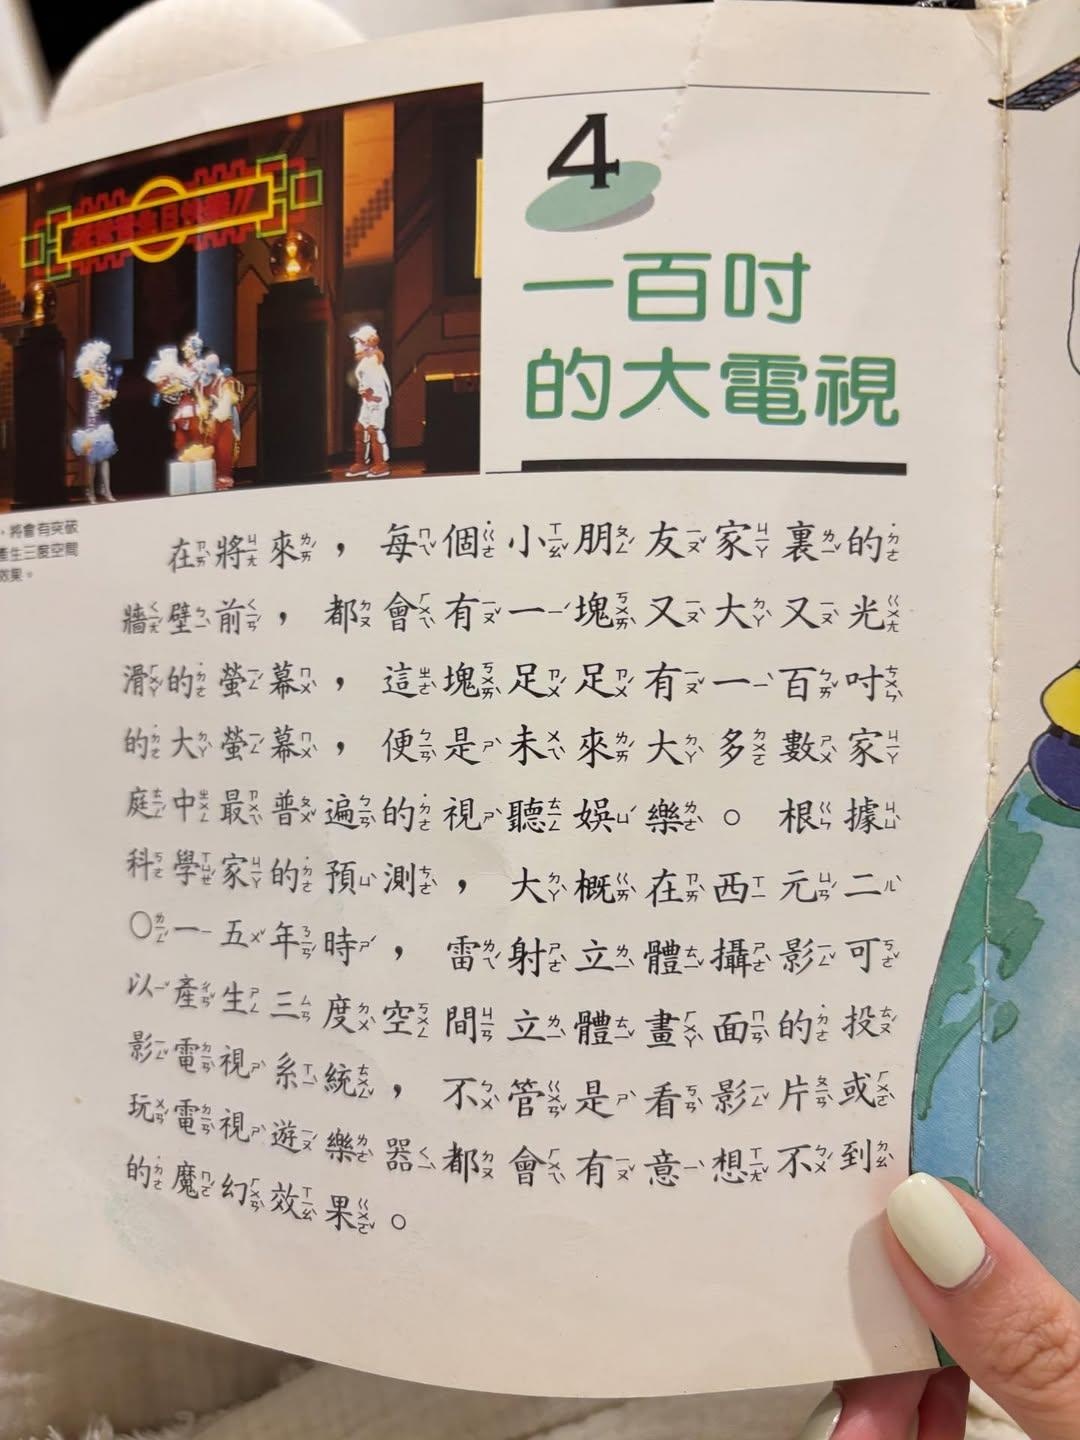 4
一百吋
的大電視
,將會有突破
產生三度空間
效果。
在將來，每個小朋友家裏的
牆壁前，都會有一塊又大又光
滑的螢幕，這塊足足有一百吋
的大螢幕，便是未來大多數家
庭中最普遍的視聽娛樂。根據
科學家的預測，大概在西元二
〇一五年時，雷射立體攝影可
以產生三度空間立體畫面的投
影電視系統，不管是看影片或
玩電視遊樂器都會有意想不到
的魔幻效果。